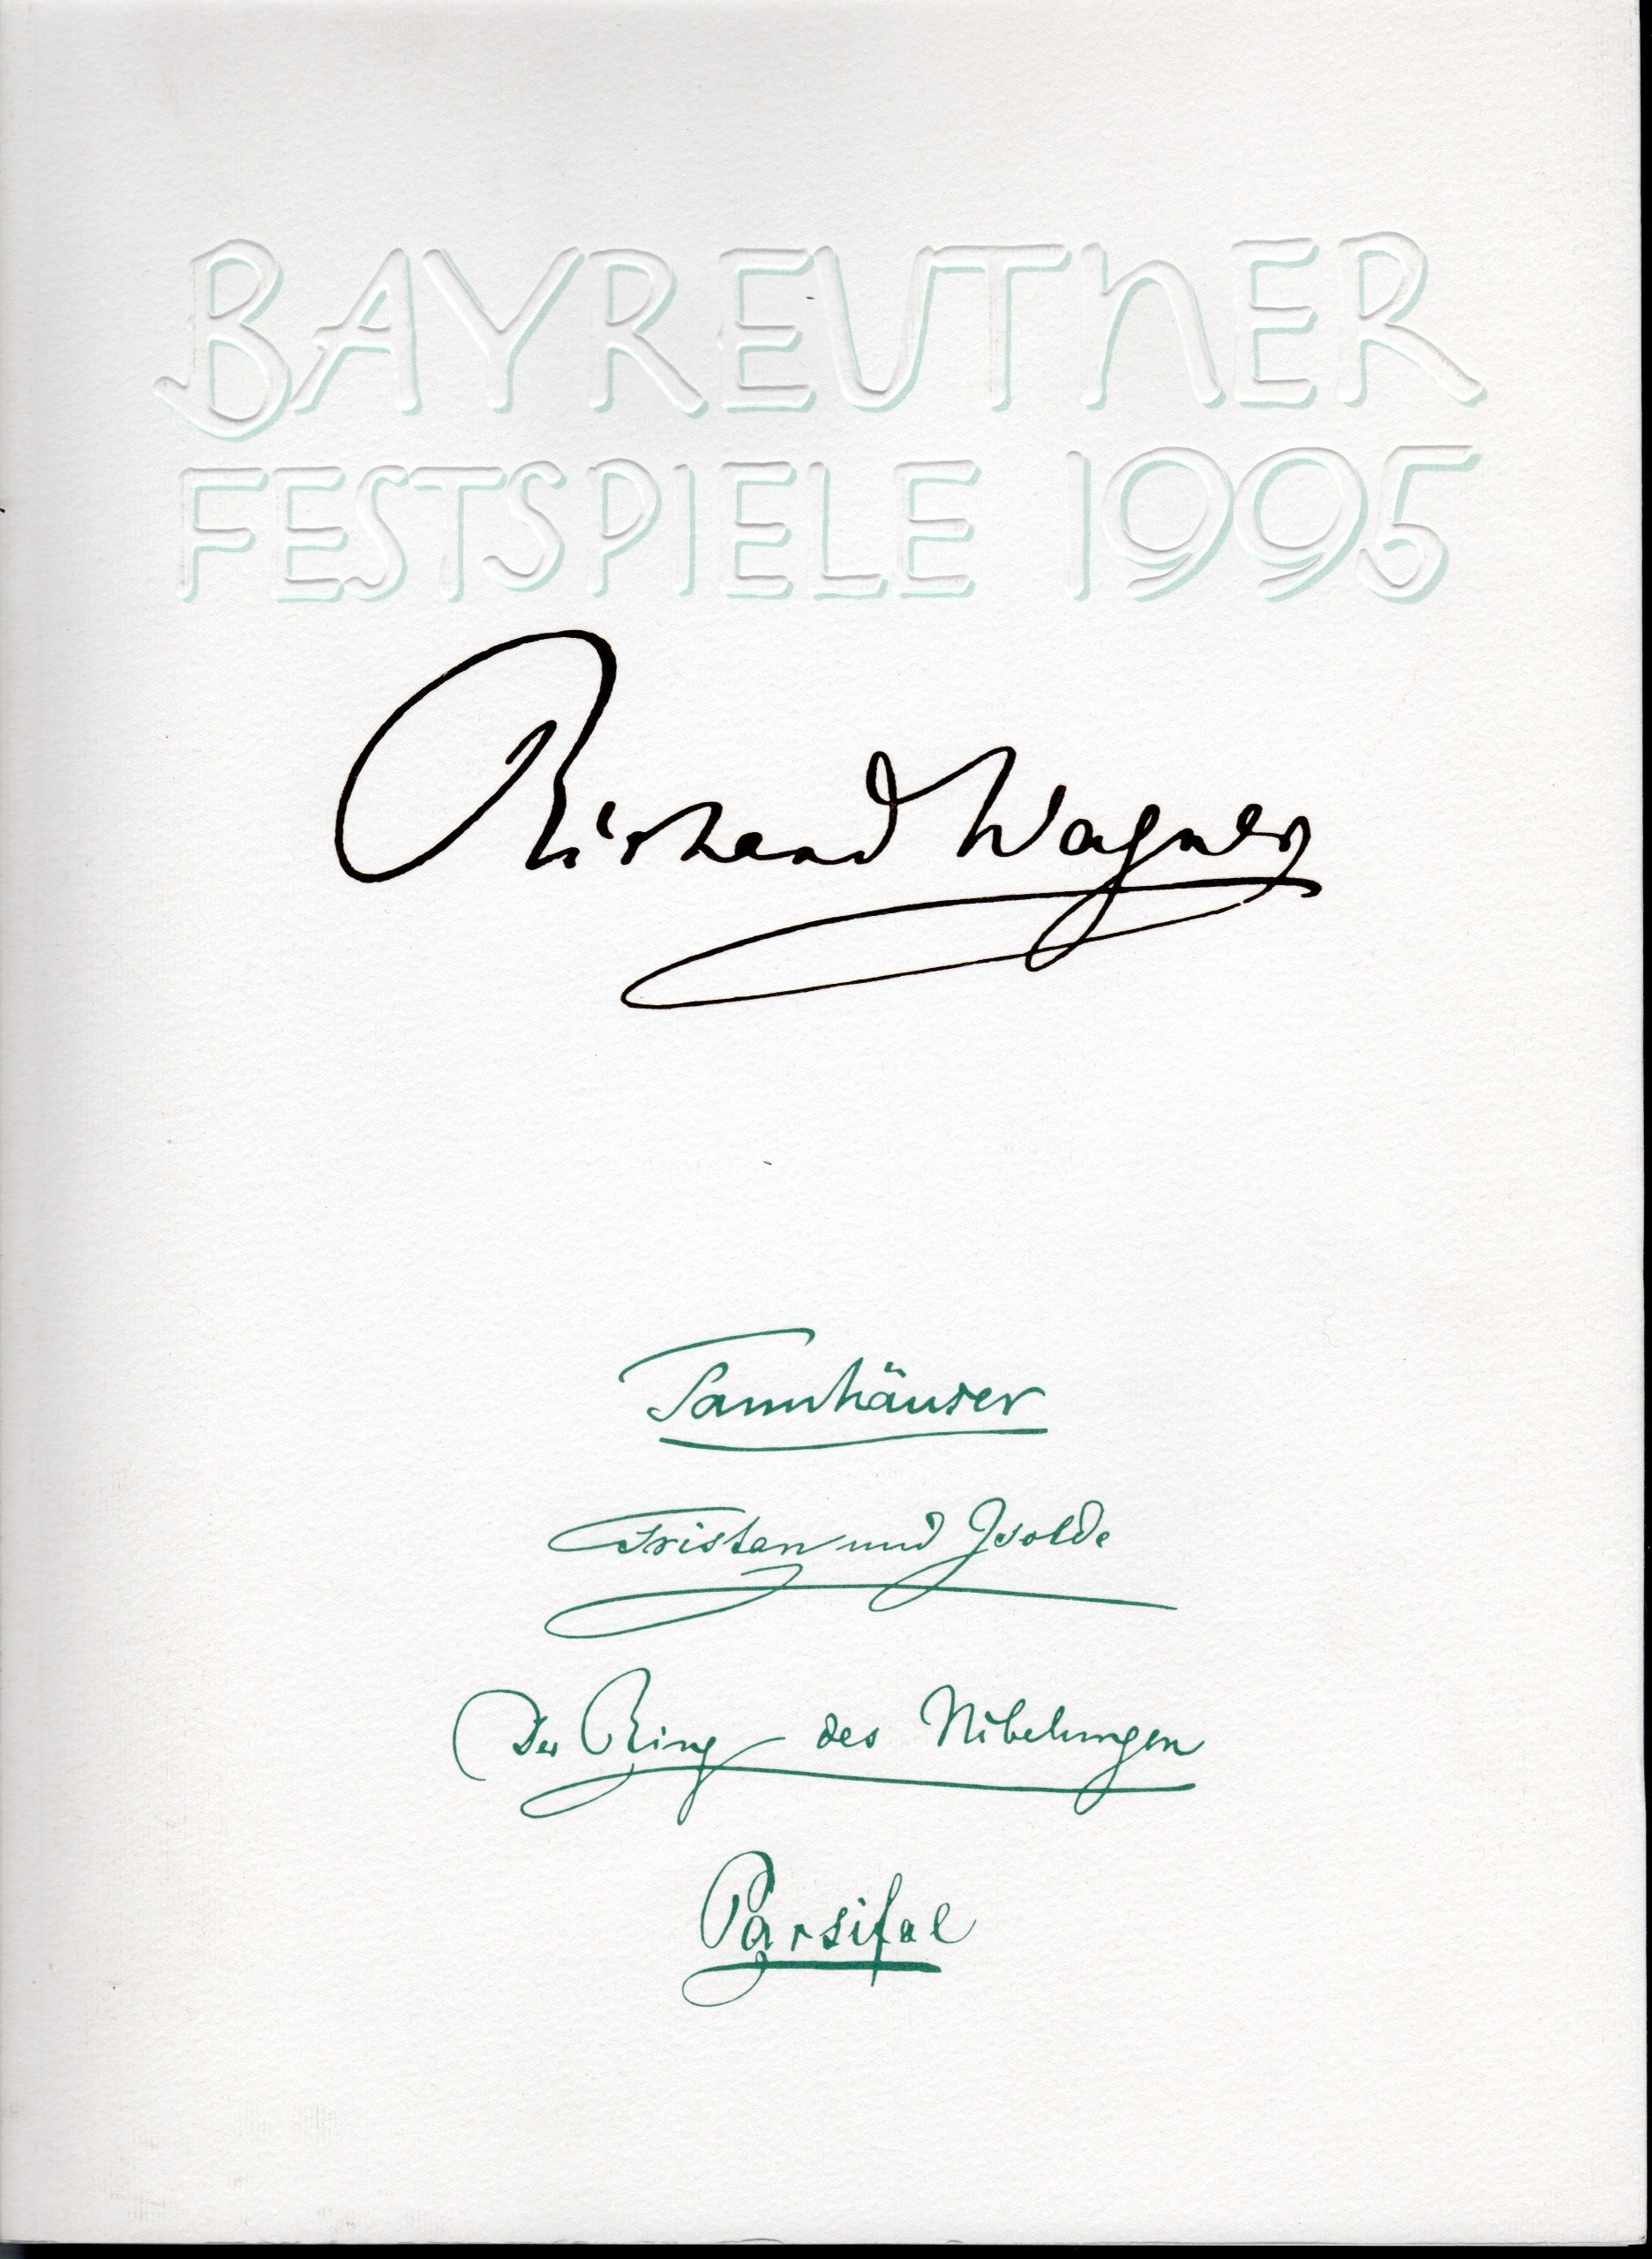 BAYREUTHER
FESTSPIELE 1995
Richard Wagner
Tannhäuser
Tristan und Isolde
Der Ring des Nibelungen
Parsifal